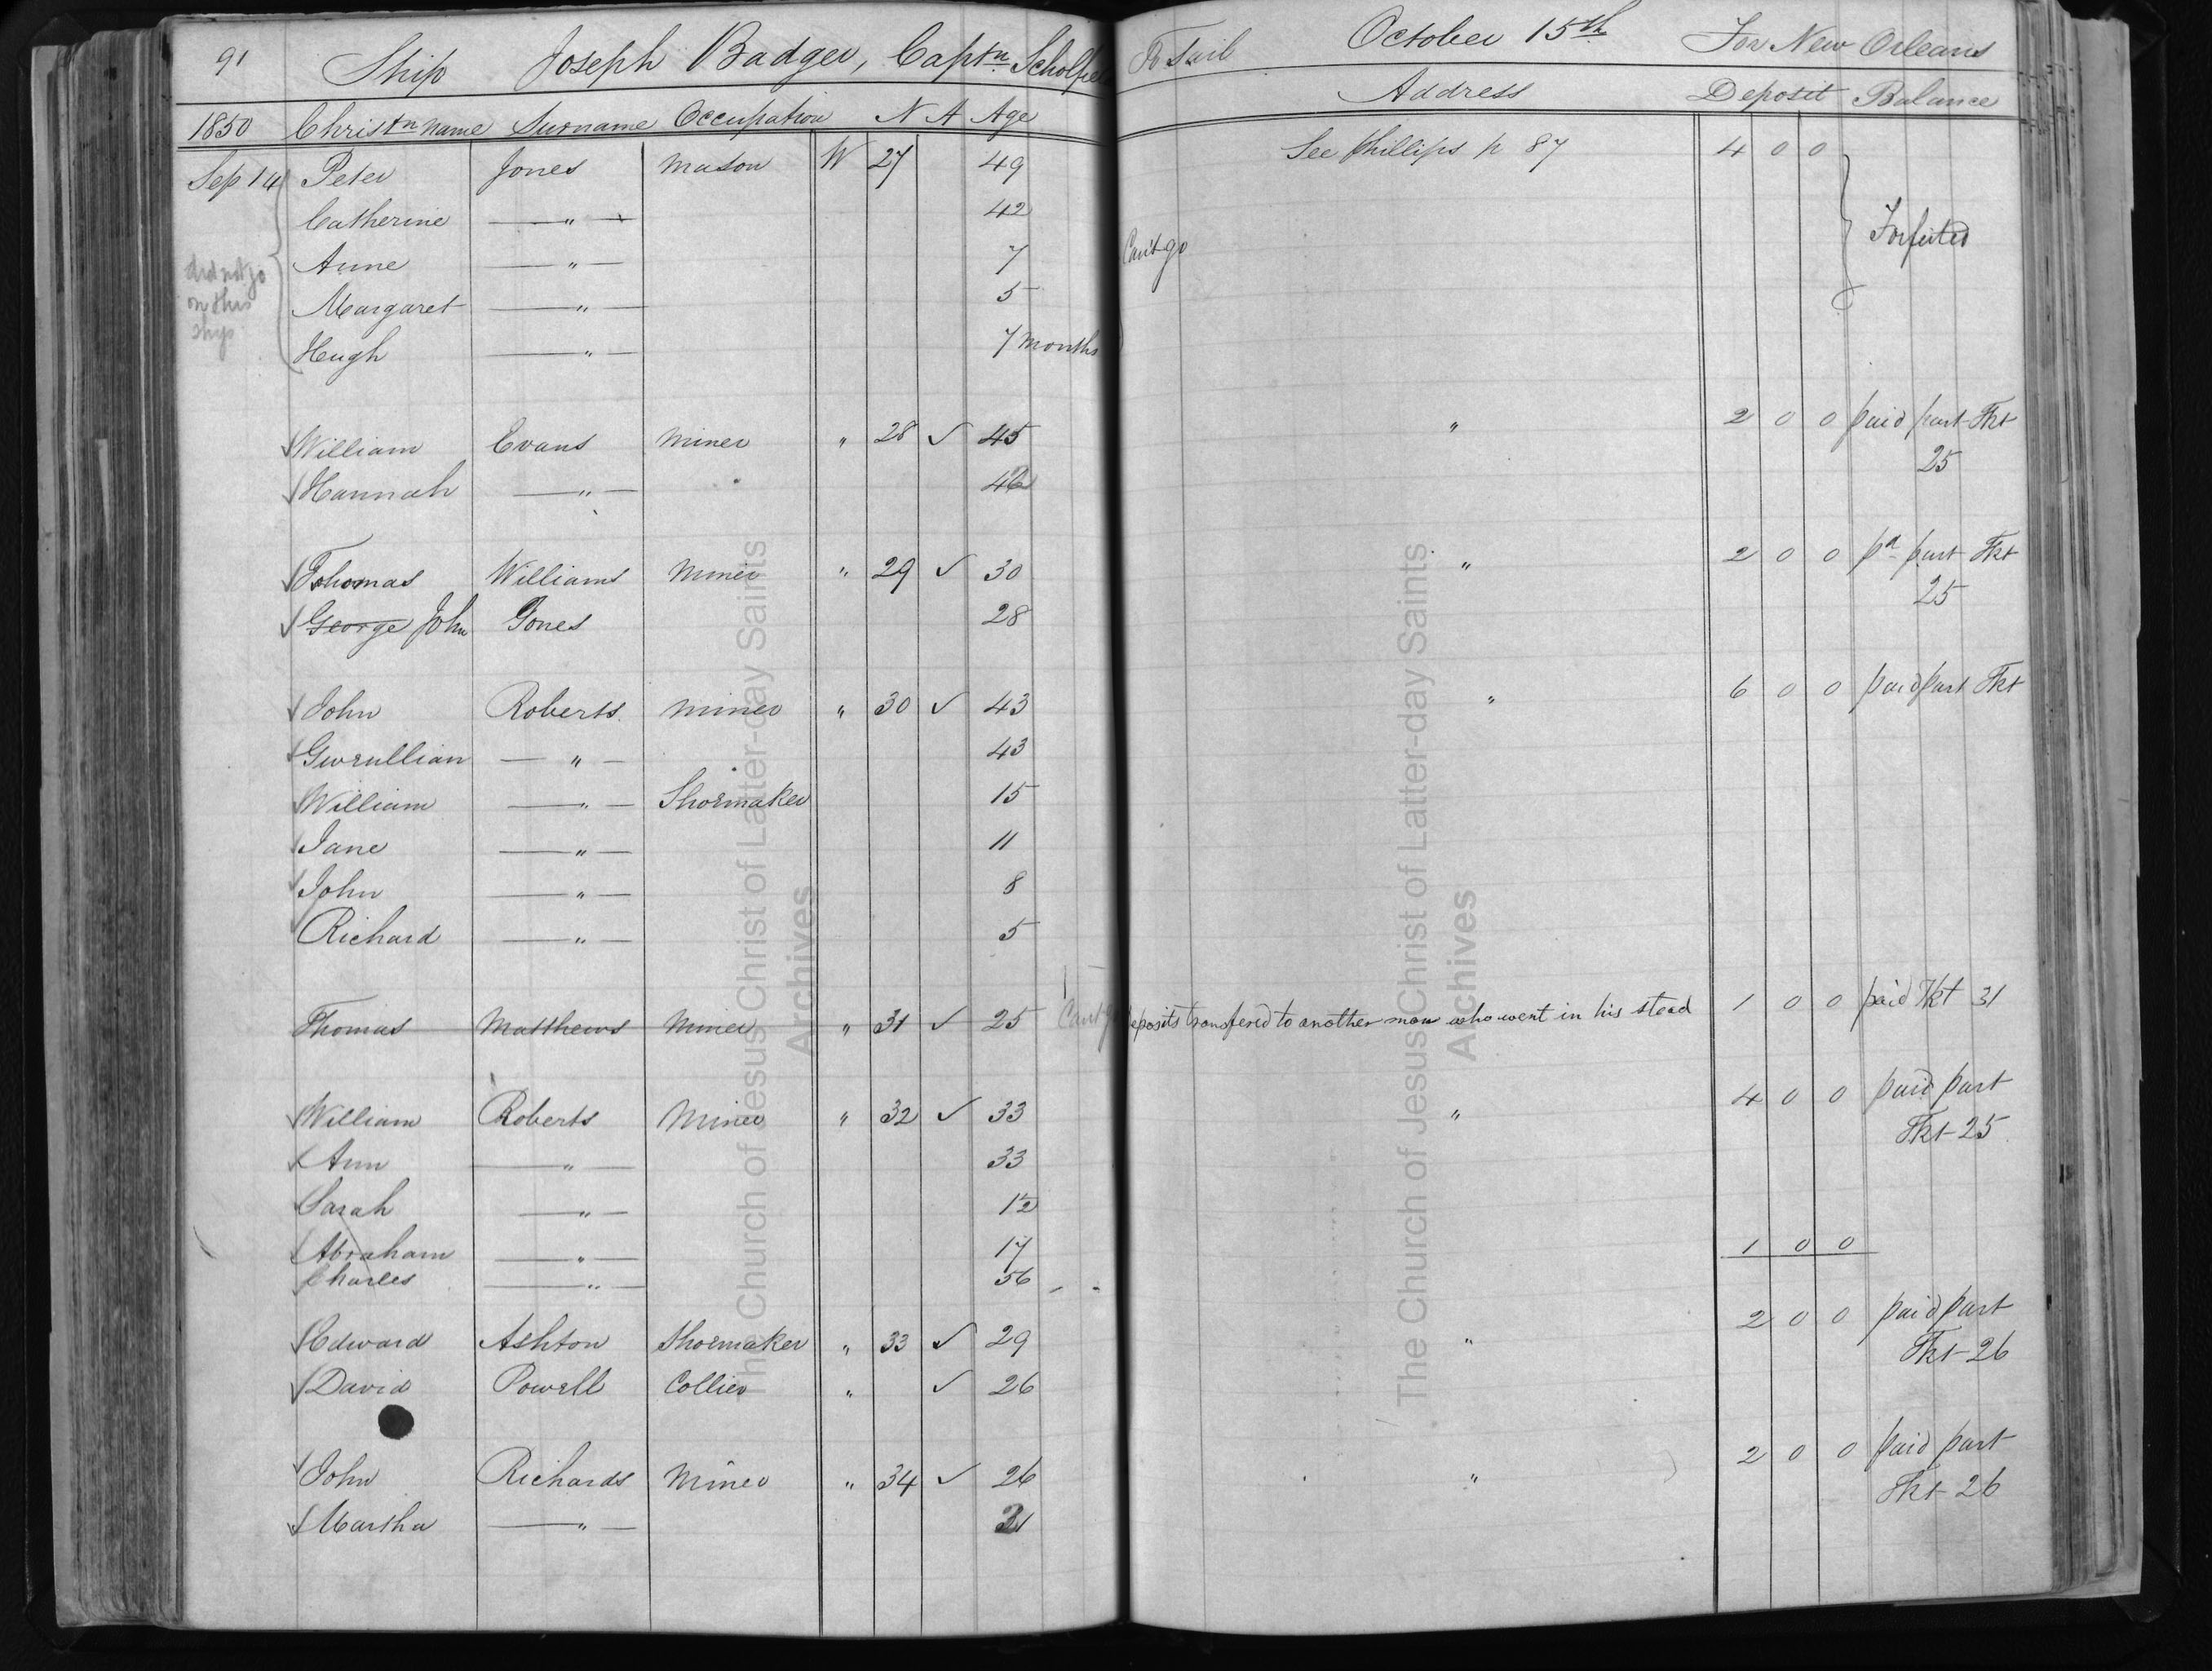 91 Ship Joseph Badger, Captn. Scholfie To Sail October 15th For New Orleans
1850 Christn name Surname Occupation N A Age Address Deposit Balance
Sep 14 Peter Jones Mason W 27 49 See Phillips p 87 4 0 0
Catherine — " — 42
Anne — " — 7 Can't go Forfeited
did not go
on this
ship
Margaret — " — 5
Hugh — " — 7 months
William Evans Miner " 28 ✓ 45 " 2 0 0 paid part Tkt
25
Hannah — " — 42
Thomas Williams Miner " 29 ✓ 30 " 2 0 0 pd part Tkt
25
George John Jones 28
John Roberts Miner " 30 ✓ 43 " 6 0 0 paid part Tkt
Gwenllian — " — 43
William — " — Shoemaker 15
Jane — " — 11
John — " — 8
Richard — " — 5
Thomas Matthews Miner " 31 ✓ 25 Can't go deposits transfered to another man who went in his stead 1 0 0 paid Tkt 31
William Roberts Miner " 32 ✓ 33 " 4 0 0 paid part
Tkt 25
Ann — " — 33
Sarah — " — 12
Abraham — " — 17 1 0 0
Charles — " — 56
Edward Ashton Shoemaker " 33 ✓ 29 " 2 0 0 paid part
Tkt 26
David Powell Collier " ✓ 26
John Richards Miner " 34 ✓ 26 " 2 0 0 paid part
Tkt 26
Martha — " — 21
The Church of Jesus Christ of Latter-day Saints
Archives
The Church of Jesus Christ of Latter-day Saints
Achives